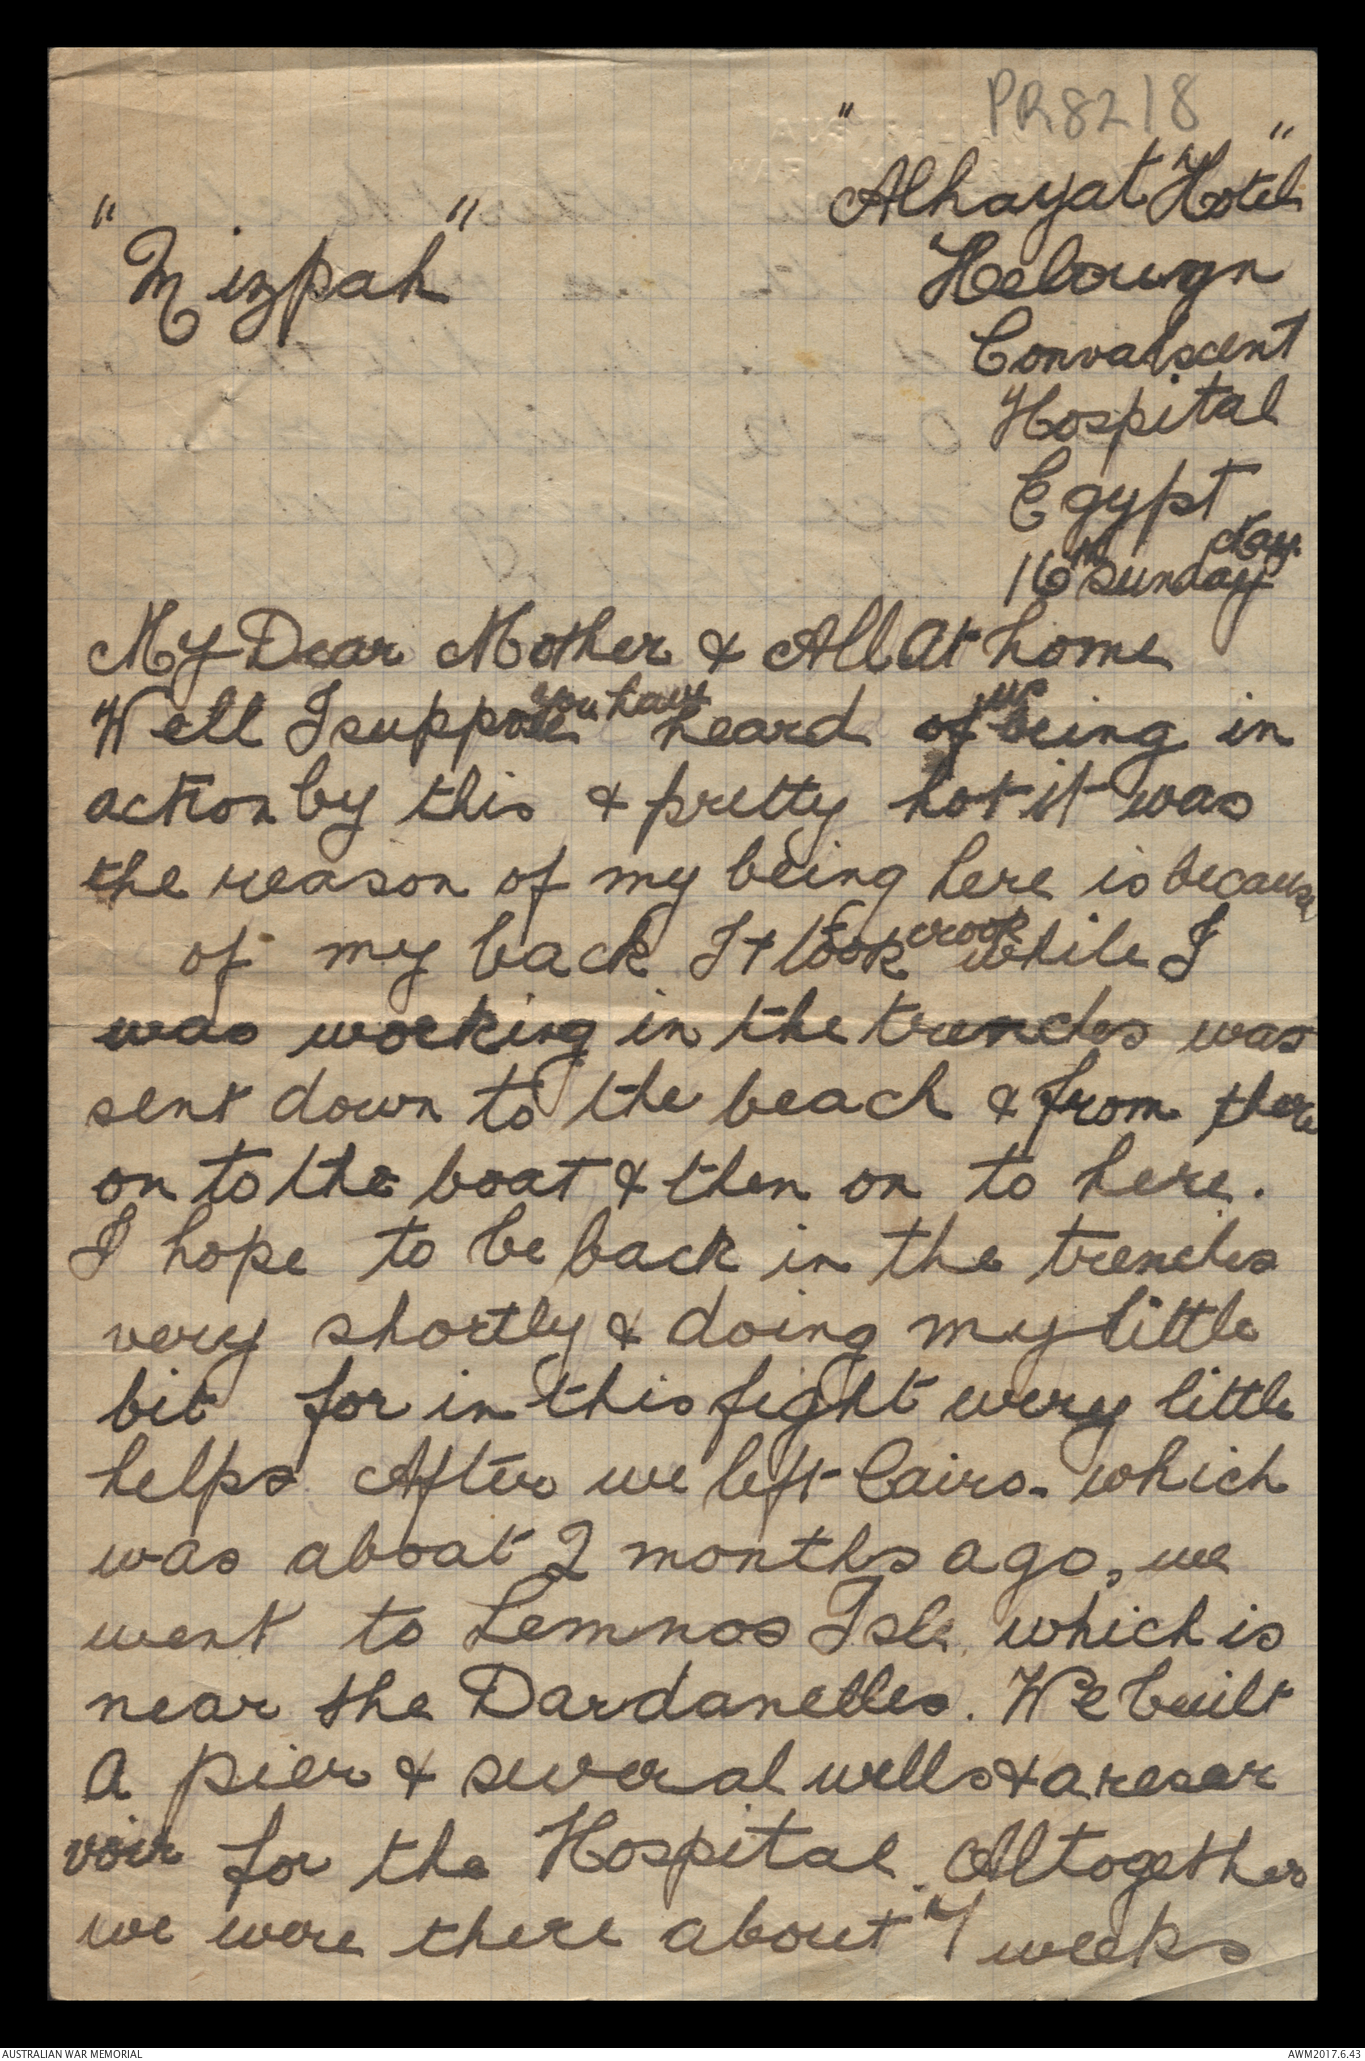 PR8218
"Alhayat Hotel"
"Mizpah"
Helouyn
Convalscent
Hospital
Egypt
16th Sunday May.
My Dear Mother & All At home
Well I suppose you have heard of us being in
action by this & pretty hot it was
the reason of my being here is because
of my back It took crook while I
was working in the trenches was
sent down to the beach & from there
on to the boat & then on to here.
I hope to be back in the trenches
very shortly & doing my little
bit for in this fight every little
helps. After we left Cairo. which
was about 2 months ago, we
went to Lemnos Isle. which is
near the Dardanelles. We built
a pier & several wells & a reser
voir for the Hospital. Altogether
we were there about 7 weeks
AUSTRALIAN WAR MEMORIAL
AWM2017.6.43